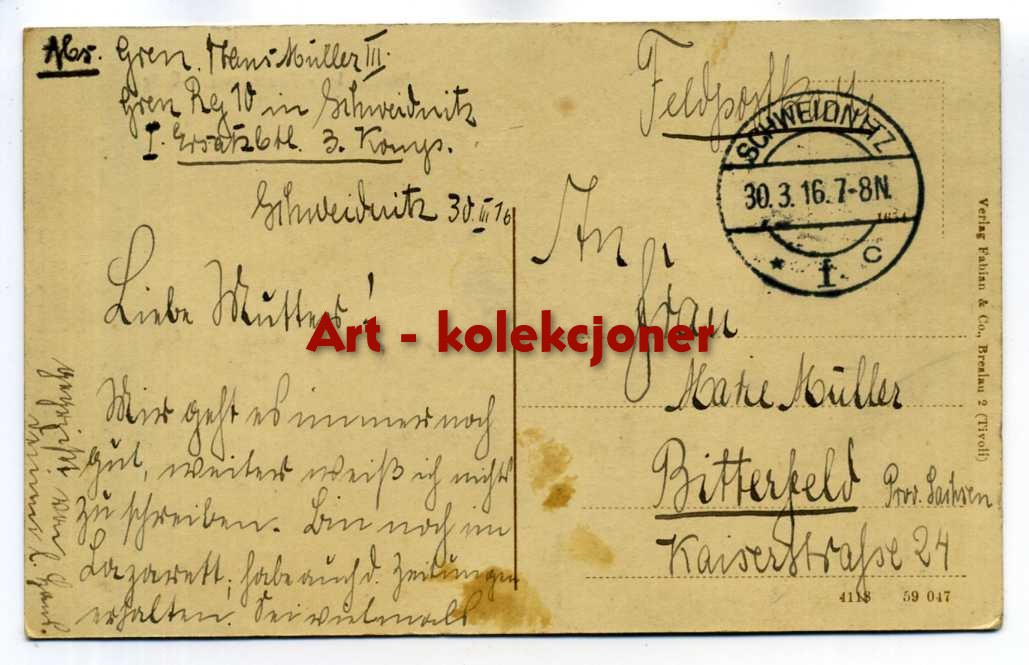 Abs. Gren. Hans Müller III.
Gren Reg 10 in Schweidnitz
I. Ersatzbtl. 3. Komp.
Schweidnitz 30 III 16
Liebe Mutter!
Mir geht es immer noch
gut, weiter weiß ich nicht
zu schreiben. Bin noch im
Lazarett, habe auch d. Zeitungen
erhalten. Sei vielmals
gegrüßt von
Deinem l. Hans.
Feldpostk
SCHWEIDNITZ
30.3.16.7-8N.
* f c
An
Frau
Marie Müller
Bitterfeld Prov. Sachsen
Kaiserstraße 24
4118 59 047
Verlag Fabian & Co., Breslau 2 (Tivoli)
Art - kolekcjoner